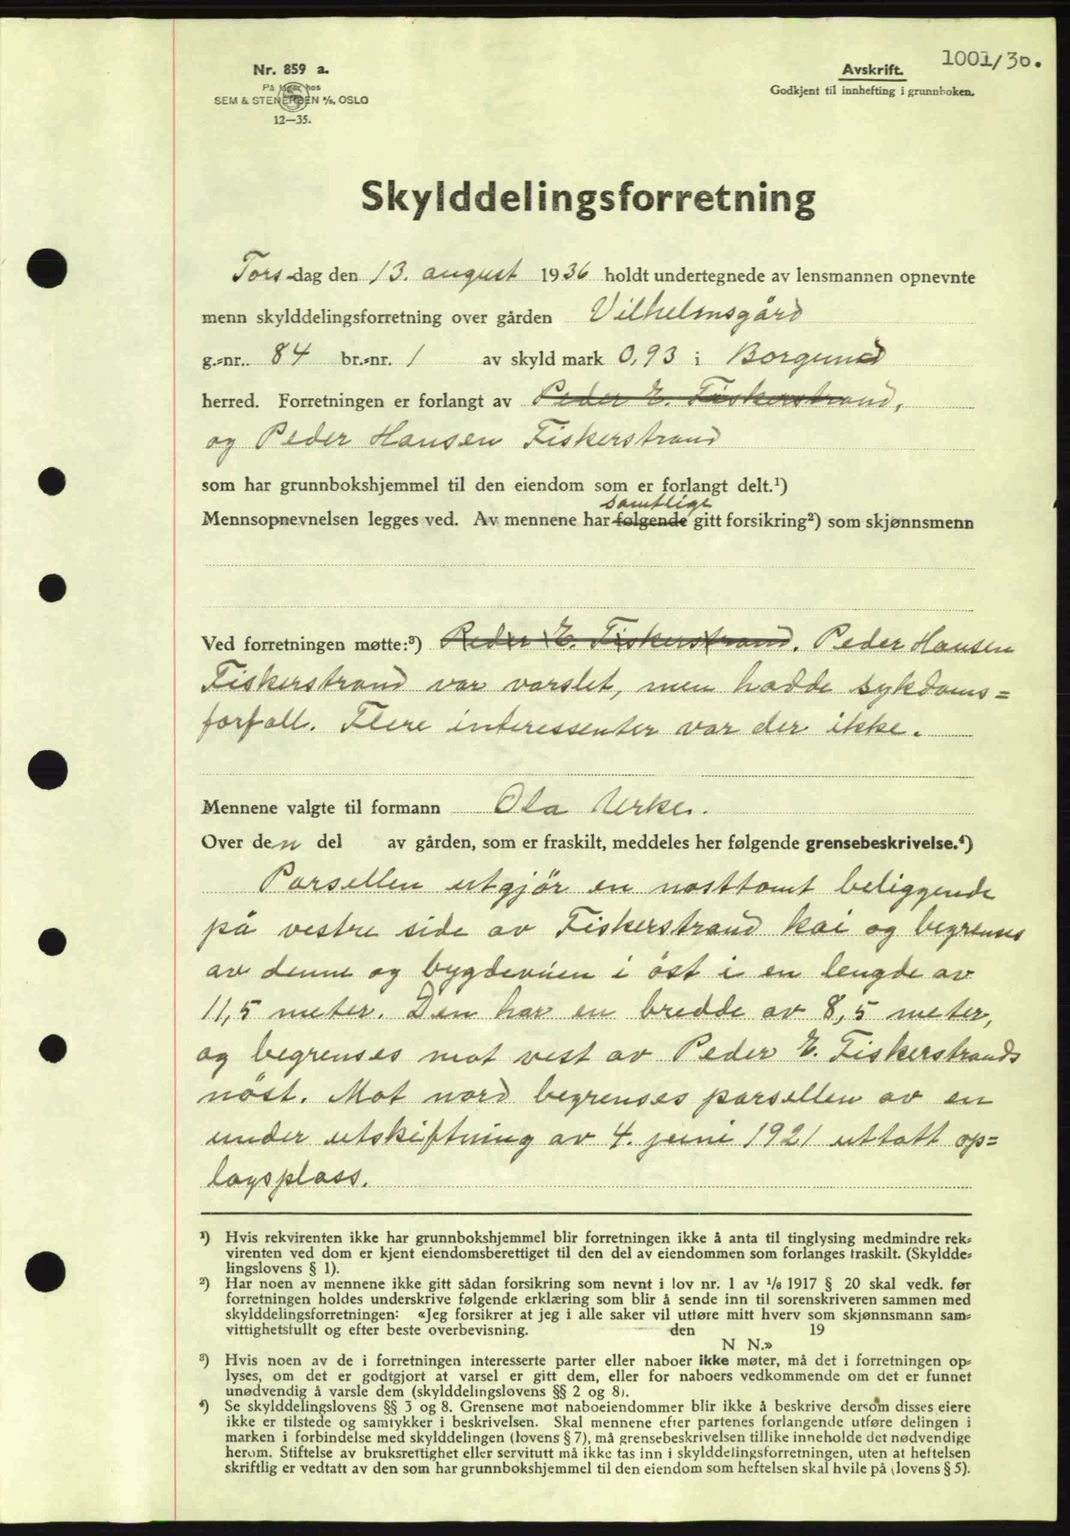 1001/30.
Nr. 859 a.
På lager hos
SEM & STENERSEN A/S, OSLO
12—35.
Avskrift.
Godkjent til innhefting i grunnboken.
Skylddelingsforretning
Torsdag den 13. august 1936 holdt undertegnede av lensmannen opnevnte
menn skylddelingsforretning over gården Vilhelmsgård
g.-nr.. 84 br.-nr. 1 av skyld mark 0,93 i Borgund
herred. Forretningen er forlangt av Peder E. Fiskerstrand,
og Peder Hansen Fiskerstrand
som har grunnbokshjemmel til den eiendom som er forlangt delt.¹)
samtlige
Mennsopnevnelsen legges ved. Av mennene har følgende gitt forsikring²) som skjønnsmenn
Ved forretningen møtte:³) Peder E. Fiskerstrand. Peder Hansen
Fiskerstrand var varslet, men hadde sykdoms=
forfall. Flere interessenter var der ikke.
Mennene valgte til formann Ola Urke.
Over den del av gården, som er fraskilt, meddeles her følgende grensebeskrivelse.⁴)
Parsellen utgjör en nosttomt beliggende
på vestre side av Fiskerstrand kai og begrenses
av denne og bygdeveien i öst i en lengde av
11,5 meter. Den har en bredde av 8,5 meter,
og begrenses mot vest av Peder E. Fiskerstrands
nöst. Mot nord begrenses parsellen av en
under utskiftning av 4. juni 1921 uttatt op=
lagsplass.
¹) Hvis rekvirenten ikke har grunnbokshjemmel blir forretningen ikke å anta til tinglysing medmindre rek-
virenten ved dom er kjent eiendomsberettiget til den del av eiendommen som forlanges fraskilt. (Skyldde-
lingslovens § 1).
²) Har noen av mennene ikke gitt sådan forsikring som nevnt i lov nr. 1 av 1/6 1917 § 20 skal vedk. før
forretningen holdes underskrive følgende erklæring som blir å sende inn til sorenskriveren sammen med
skylddelingsforretningen: «Jeg forsikrer at jeg i alle saker vil utføre mitt hverv som skjønnsmann sam-
vittighetsfullt og efter beste overbevisning. den 19
N N.»
³) Hvis noen av de i forretningen interesserte parter eller naboer ikke møter, må det i forretningen op-
lyses, om det er godtgjort at varsel er gitt dem, eller for naboers vedkommende om det er funnet
unødvendig å varsle dem (skylddelingslovens §§ 2 og 8).
⁴) Se skylddelingslovens §§ 3 og 8. Grensene mot naboeiendommer blir ikke å beskrive dersom disses eiere
ikke er tilstede og samtykker i beskrivelsen. Skal mennene efter partenes forlangende utføre delingen i
marken i forbindelse med skylddelingen (lovens § 7), må grensebeskrivelsen tillike inneholde det nødvendige
herom. Stiftelse av bruksrettighet eller servitutt må ikke tas inn i skylddelingsforretningen, uten at heftelsen
skriftlig er vedtatt av den som har grunnbokshjemmel til den eiendom som heftelsen skal hvile på (lovens § 5).